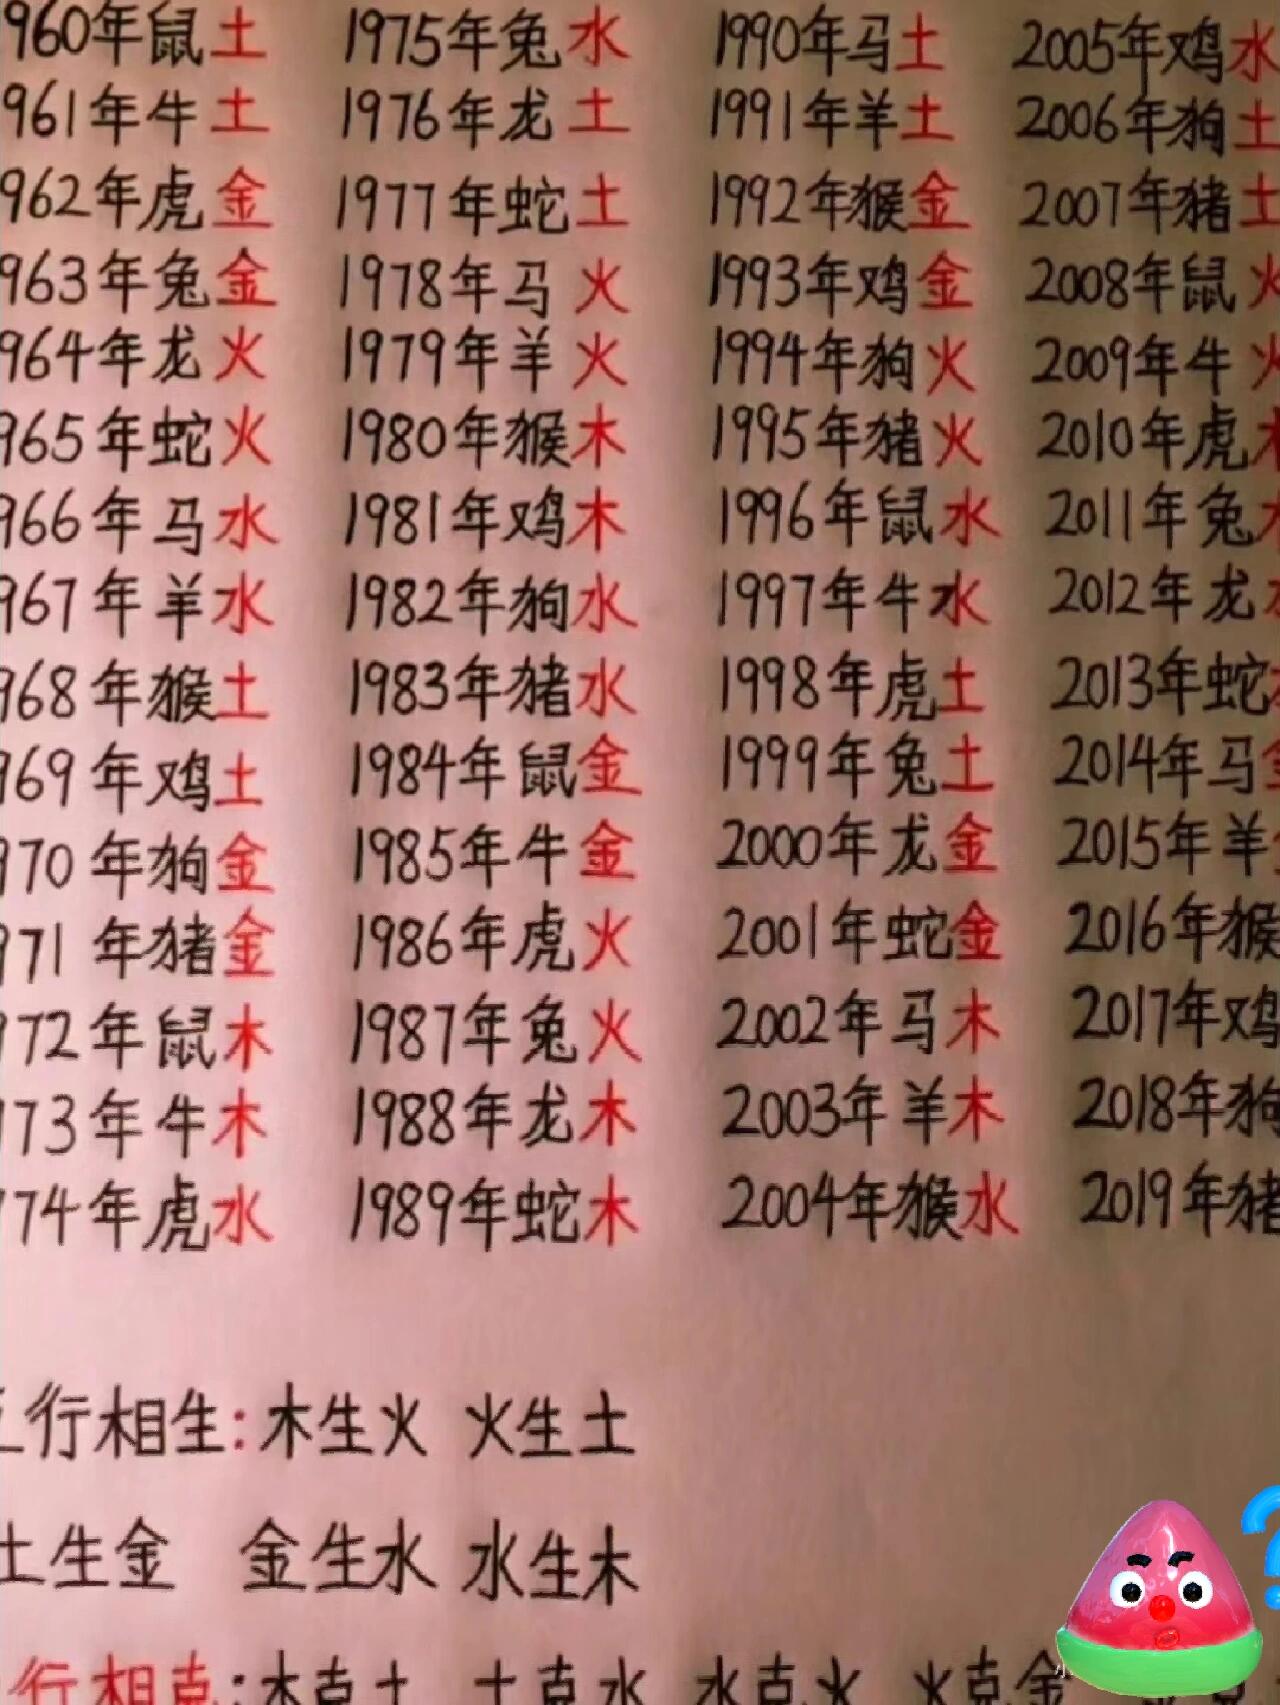 960年鼠土 1975年兔水 1990年马土 2005年鸡水
961年牛土 1976年龙土 1991年羊土 2006年狗土
962年虎金 1977年蛇土 1992年猴金 2007年猪土
963年兔金 1978年马火 1993年鸡金 2008年鼠火
964年龙火 1979年羊火 1994年狗火 2009年牛火
965年蛇火 1980年猴木 1995年猪火 2010年虎木
966年马水 1981年鸡木 1996年鼠水 2011年兔木
967年羊水 1982年狗水 1997年牛水 2012年龙
968年猴土 1983年猪水 1998年虎土 2013年蛇
969年鸡土 1984年鼠金 1999年兔土 2014年马金
970年狗金 1985年牛金 2000年龙金 2015年羊
971年猪金 1986年虎火 2001年蛇金 2016年猴
972年鼠木 1987年兔火 2002年马木 2017年鸡
973年牛木 1988年龙木 2003年羊木 2018年狗
974年虎水 1989年蛇木 2004年猴水 2019年猪
五行相生:木生火 火生土
土生金 金生水 水生木
行相克:木克土 土克水 水克火 火克金